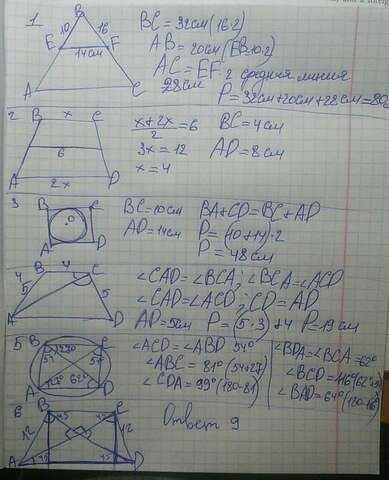 1
B
10 16
E F
14см
A C
BC = 32см (16·2)
AB = 20см (EB·10·2)
AC = EF·2 средняя линия
28см
P = 32см+20см+28см=80
2
B x C
6
A 2x D
x+2x/2 = 6
3x = 12
x = 4
BC = 4см
AD = 8см
3
B C
O
A D
BC = 10см
AD = 14см
BA+CD = BC+AD
P = (10+14)·2
P = 48см
4
B 4 C
5 5
A D
∠CAD = ∠BCA; ∠BCA = ∠ACD
∠CAD = ∠ACD; CD = AD
AD = 5см P = (5·3)+4 P = 19см
5
B C
54 54
A 27° 62° D
∠ACD = ∠ABD 54°
∠ABC = 81° (54+27)
∠CDA = 99° (180-81)
∠BDA = ∠BCA = 62°
∠BCD = 116° (62+54)
∠BAD = 64° (180-116)
6
B C
45 45
12 12
A 45 45 D
Ответ 9